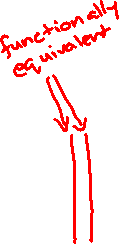 functionally
equivalent